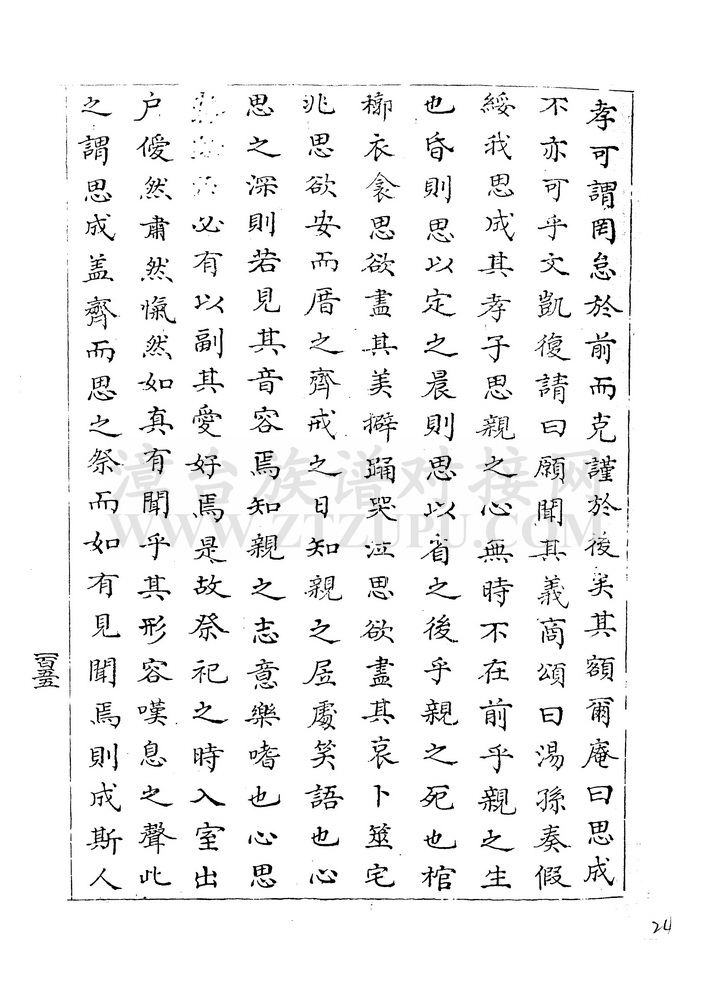 孝可謂罔怠於前而克謹於後矣其額爾庵曰思成
不亦可乎文凱復請曰願聞其義商頌曰湯孫奏假
綏我思成其孝子思親之心無時不在前乎親之生
也昏則思以定之晨則思以省之後乎親之死也棺
槨衣衾思欲盡其美擗踊哭泣思欲盡其哀卜筮宅
兆思欲安而厝之齊戒之日知親之居處笑語也心
思之深則若見其音容焉知親之志意樂嗜也心思
必有以副其愛好焉是故祭祀之時入室出
户僾然肅然愾然如真有聞乎其形容嘆息之聲此
之謂思成盖齊而思之祭而如有見聞焉則成斯人
一百五五
24
漳台族谱对接网
WWW.ZTZUPU.COM